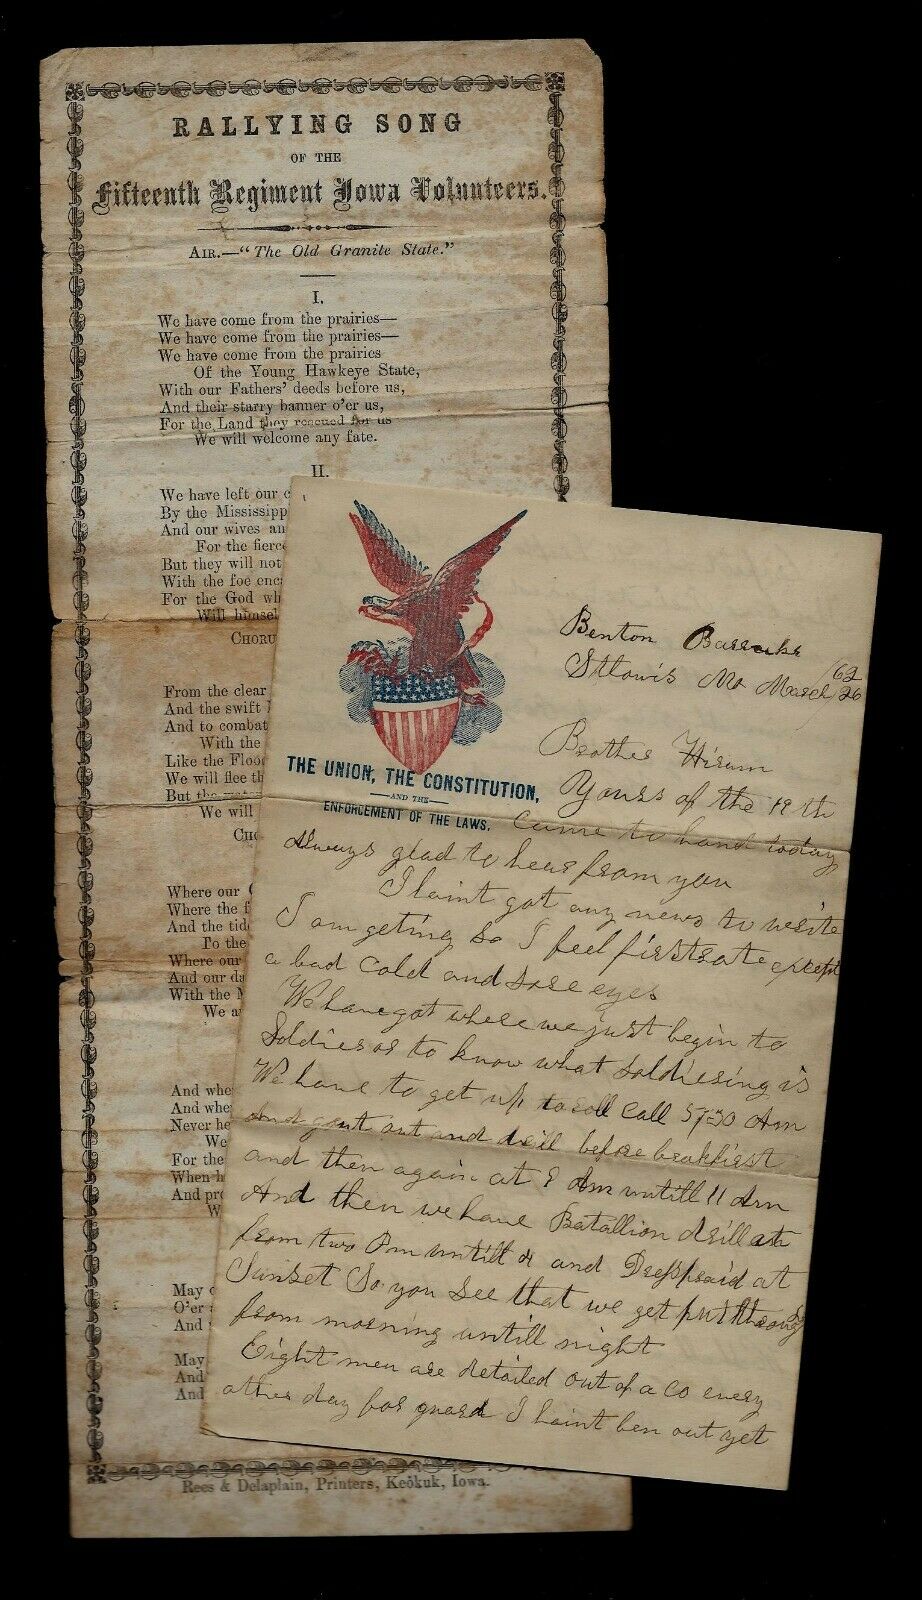 RALLYING SONG
OF THE
Fifteenth Regiment Iowa Volunteers.
AIR.—"The Old Granite State."
I.
We have come from the prairies—
We have come from the prairies—
We have come from the prairies
Of the Young Hawkeye State,
With our Fathers' deeds before us,
And their starry banner o'er us,
For the Land they rescued for us
We will welcome any fate.
II.
We have left our
By the Mississipp
And our wives an
For the fierce
But they will not
With the foe enc
For the God wh
Will himsel
CHORU
From the clear
And the swift
And to combat
With the
Like the Floo
We will flee th
But the
We will
CHO
Where our
Where the f
And the tid
To the
Where our
And our da
With the M
We a
And whe
And whe
Never he
We
For the
When h
And pro
W
May
O'er
And
May
And
And
Rees & Delaplain, Printers, Keokuk, Iowa.
THE UNION, THE CONSTITUTION,
AND THE
ENFORCEMENT OF THE LAWS.
Benton Barracks
St Louis Mo March 26/62
Brother Hiram
Yours of the 19th
came to hand today
always glad to hear from you
I haint got any news to write
I am geting so I feel firstrate except
a bad cold and sore eyes
We have got where we just begin to
Soldier or to know what soldiering is
We have to get up to roll call 5.30 Am
and go out and drill before brakfirst
and then again at 9 Am untill 11 Am
And then we have Batallion drill
from two Pm untill 4 and Dressparaid at
Sunset So you see that we get put through
from morning untill night
Eight men are detailed out of a co every
other day for guard I haint ben out yet